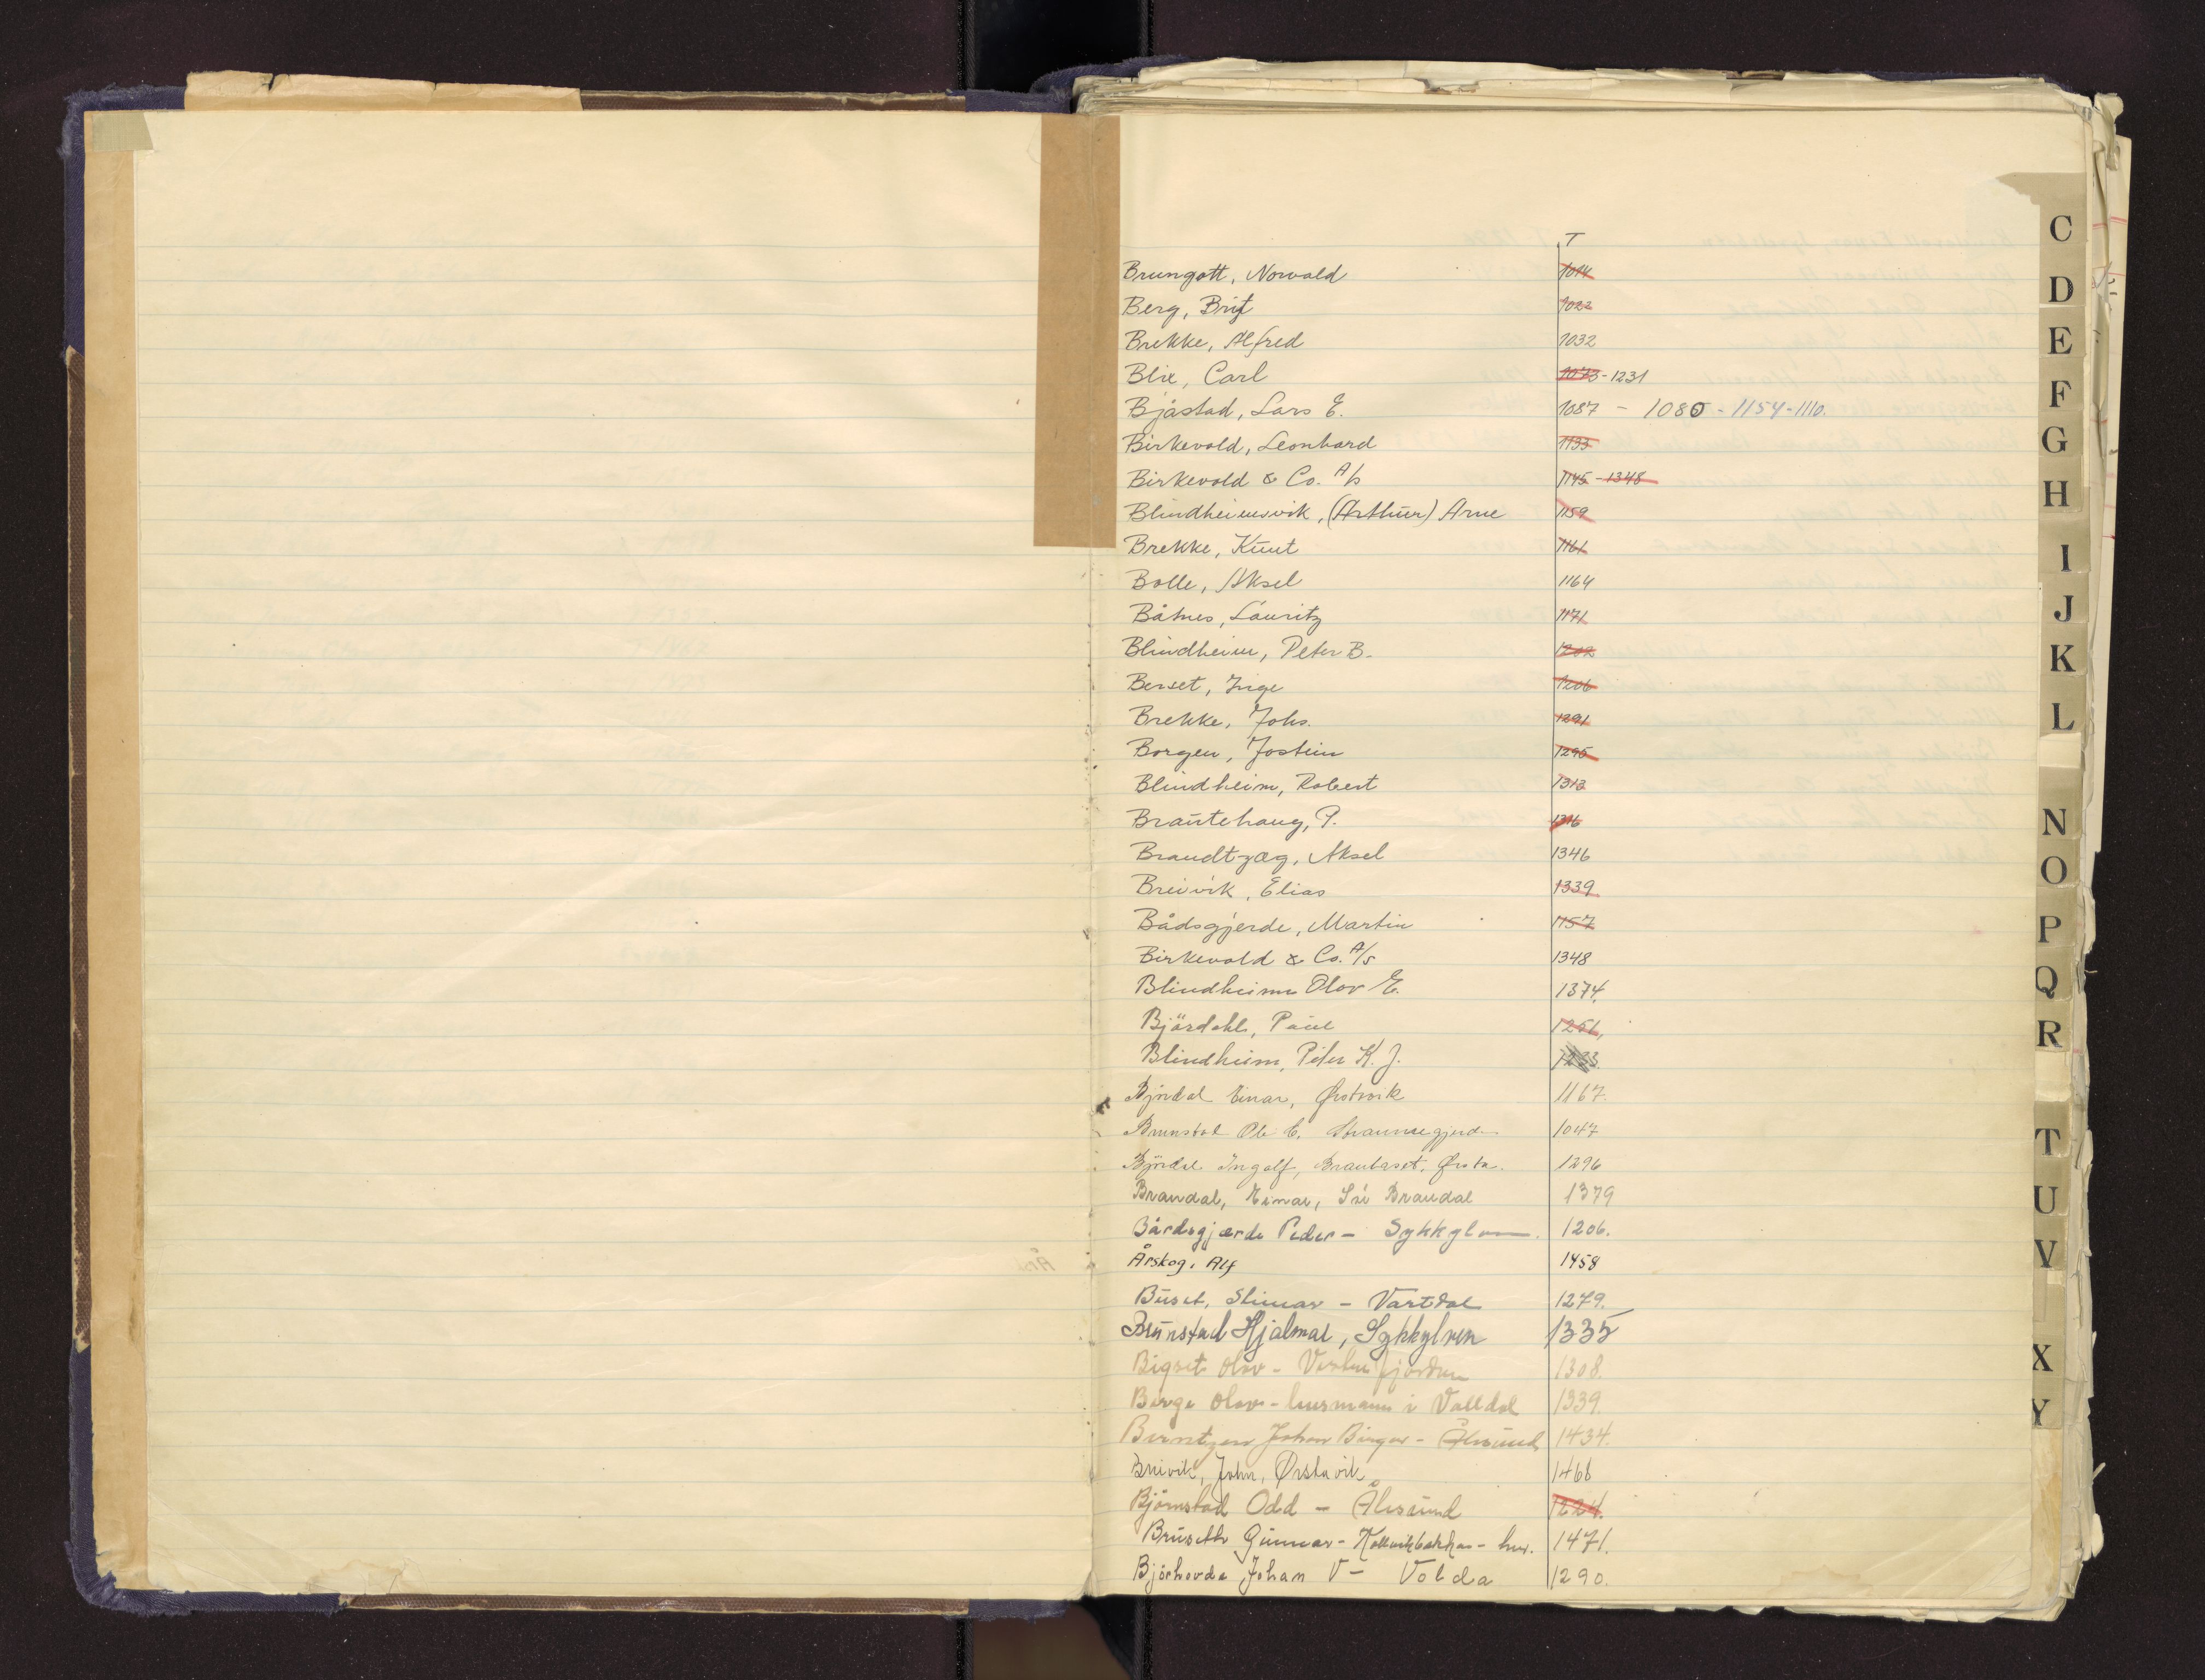 T
Brungott, Norvald 1014
Berg, Brit 1022
Brekke, Alfred 1032
Blix, Carl 1073-1231
Bjåstad, Lars E. 1087 - 1080 - 1154-1110.
Birkevold, Leonhard 1133
Birkevold & Co. A/s 1145-1348
Blindheimsvik, (Arthur) Arne 1159
Brekke, Knut 1161
Bolle, Aksel 1164
Båtnes, Lauritz 1171
Blindheim, Peter B. 1202
Berset, Inge 1206
Brekke, Johs. 1291
Borgen, Jostein 1295
Blindheim, Robert 1313
Brautehaug, P. 1316
Brandtzæg, Aksel 1346
Breivik, Elias 1339
Bådsgjerde, Martin 1157
Birkevold & Co. A/s 1348
Blindheim Olov E. 1374.
Björdahl, Paul 1251.
Blindheim, Peter K. J. 1233.
Bjørdal Einar, Ørstavik 1167.
Brunstad Ole C. Straumsgjerde 1047
Bjørdal Ingolf, Brautaset, Ørsta. 1296
Brandal, Einar, Brandal 1379
Bårdsgjærde Peder - Sykkylven. 1206.
Årskog, Alf 1458
Buset, Steinar - Vartdal 1279.
Brunstad Hjalmar, Sykkylven 1335
Bigset Olav - Vartenfjorden 1308.
Berge Olav - lensmann i Valldal 1339.
Berntzen Johan Birger - Ålesund 1434.
Breivik, John, Ørstavik 1466
Björnstad Odd - Ålesund 1224.
Bruseth Gunnar - Kolvikbakken - her. 1471.
Björhovde Johan V - Volda 1290.
C
D
E
F
G
H
I
J
K
L
N
O
P
Q
R
T
U
V
X
Y